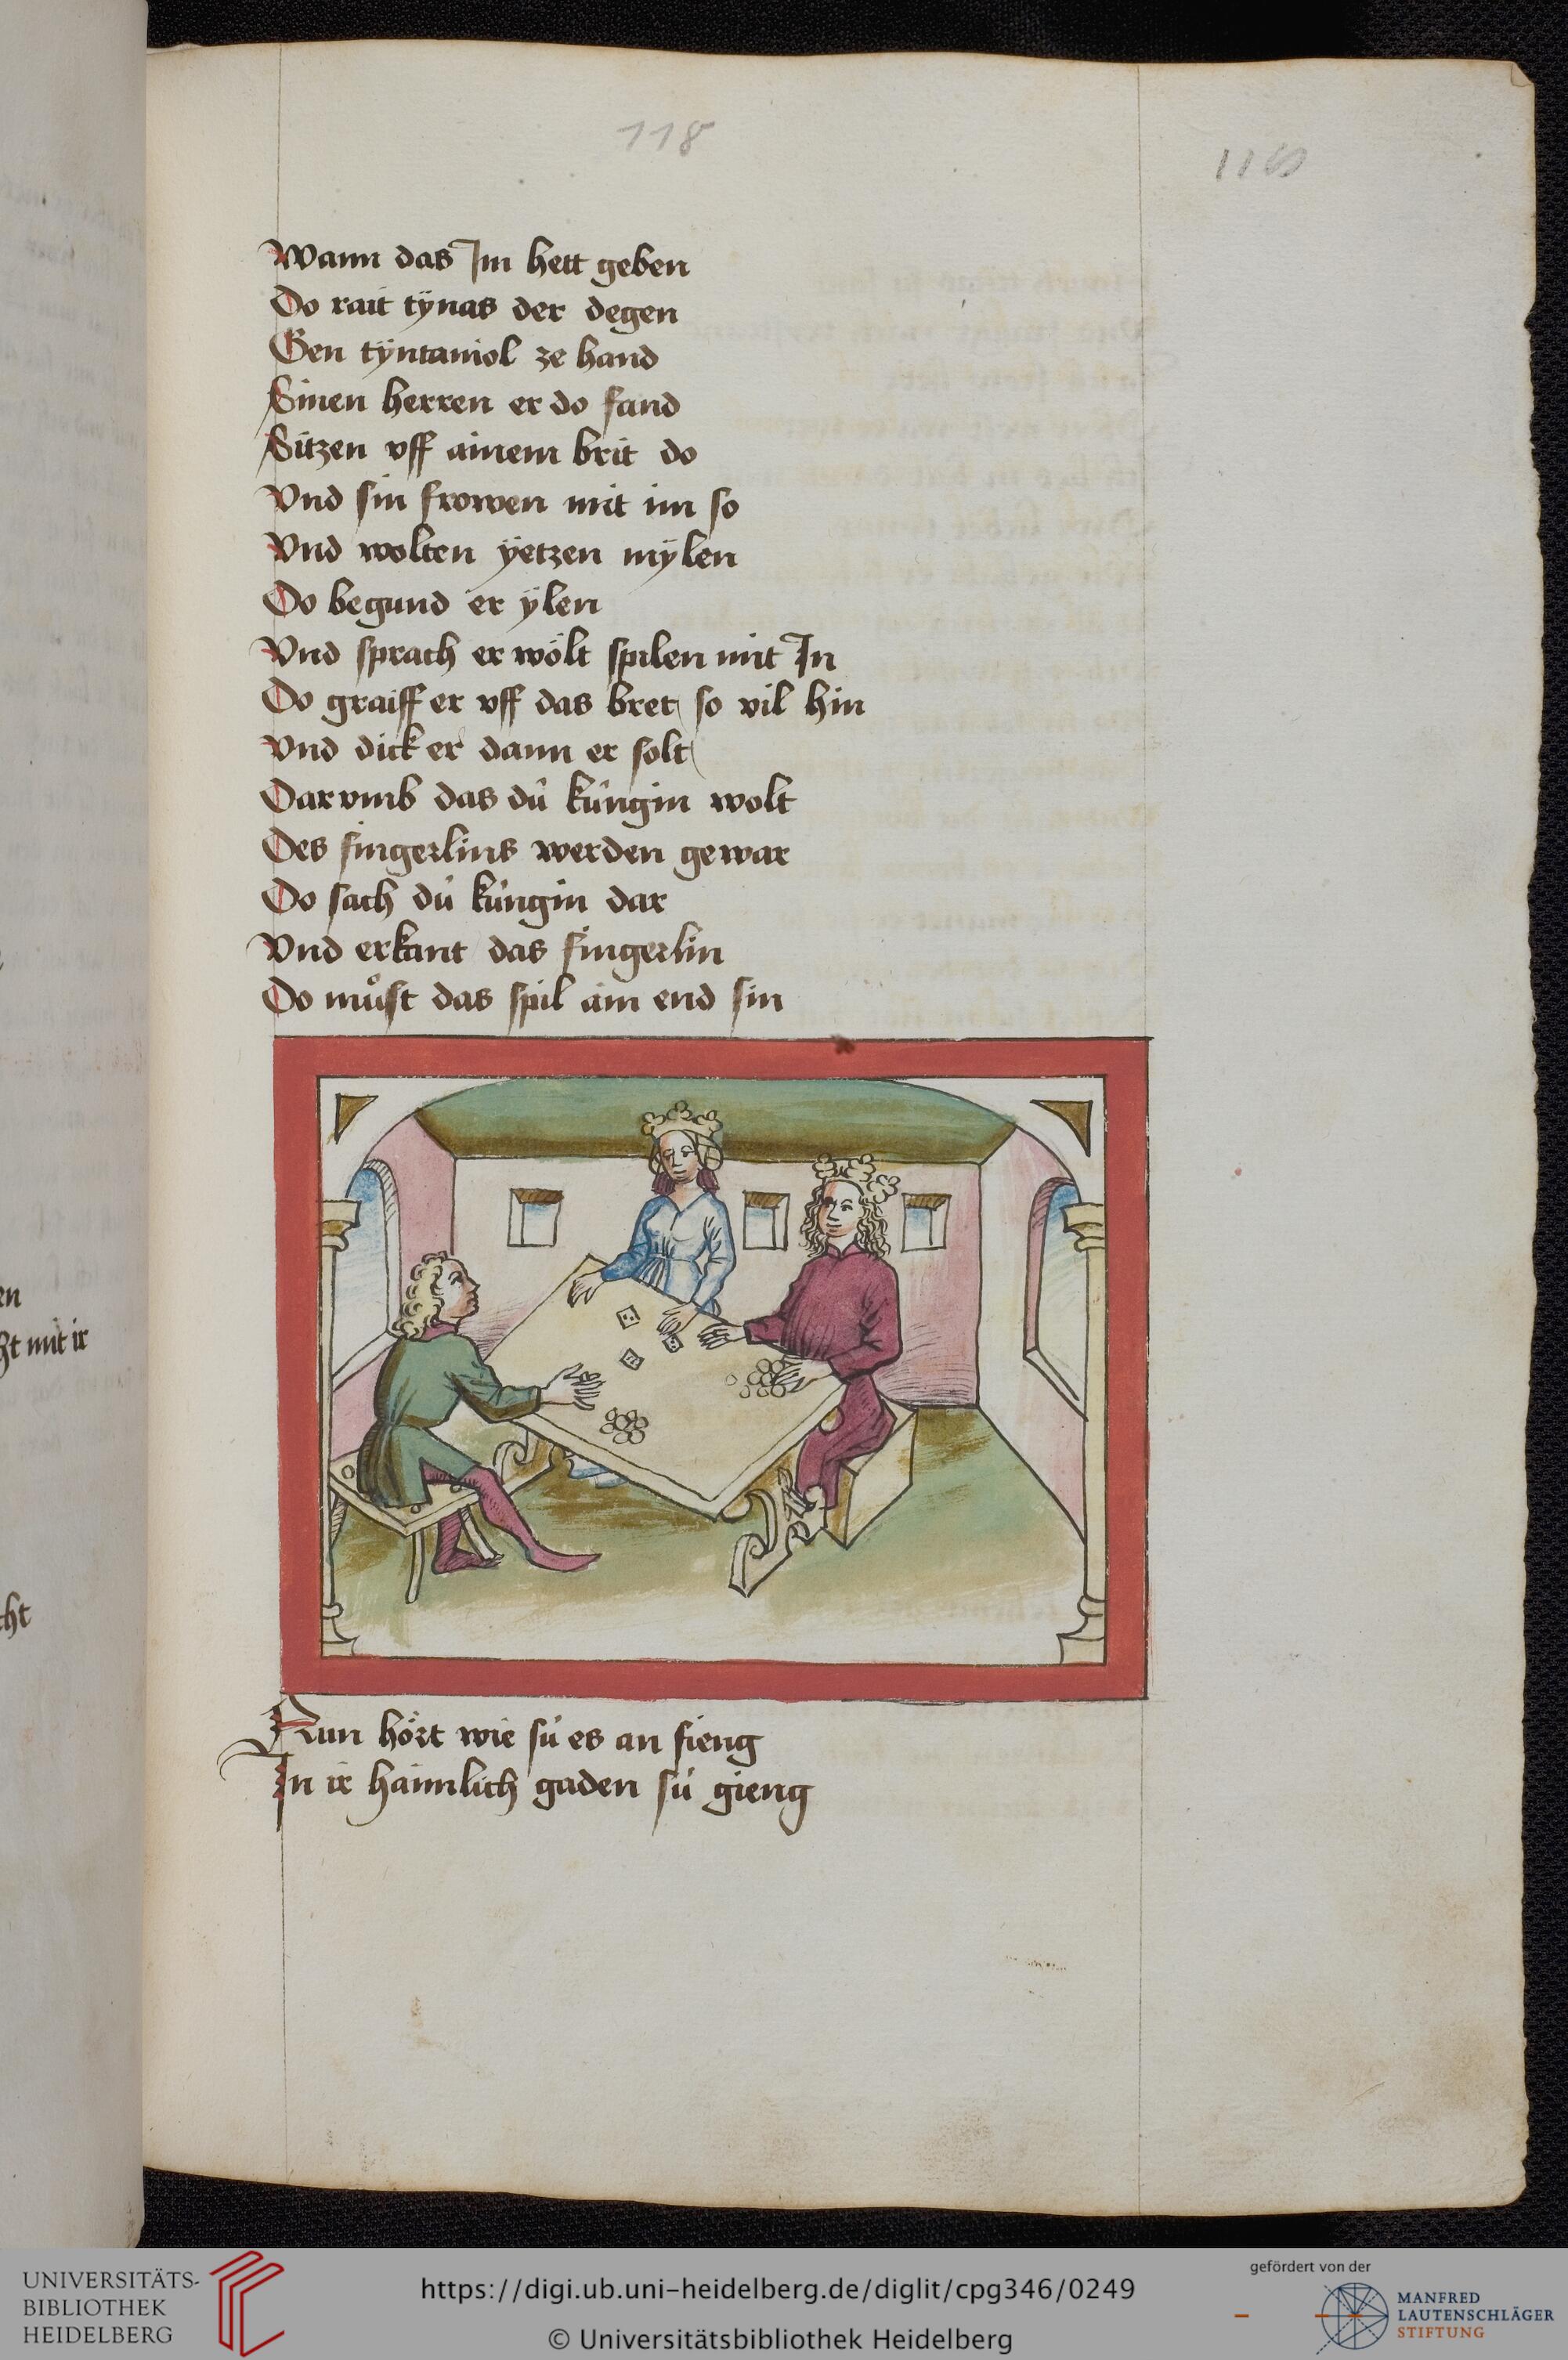 118
119
Wann das Im hett geben
Do rait tÿnas der degen
Gen tÿntaniol ze hand
Sinen herren er do fand
Sitzen vff ainem brit do
Vnd sin frowen mit im so
Vnd wolten ÿetzen mÿlen
Do begund er ÿlen
Vnd sprach er wölt spilen mit In
Do graiff er vff das bret so vil hin
Vnd dick er dann er solt
Darvmb das dú kúngin wolt
Des fingerlins werden gewar
Do sach dú kúngin dar
Vnd erkant das fingerlin
Do muͦst das spil aim end sin
Nun hört wie sú es an fieng
In ir haimlich gaden sú gieng
en
ht mit ir
cht
UNIVERSITÄTS-
BIBLIOTHEK
HEIDELBERG
https://digi.ub.uni-heidelberg.de/diglit/cpg346/0249
© Universitätsbibliothek Heidelberg
gefördert von der
MANFRED
LAUTENSCHLÄGER
STIFTUNG